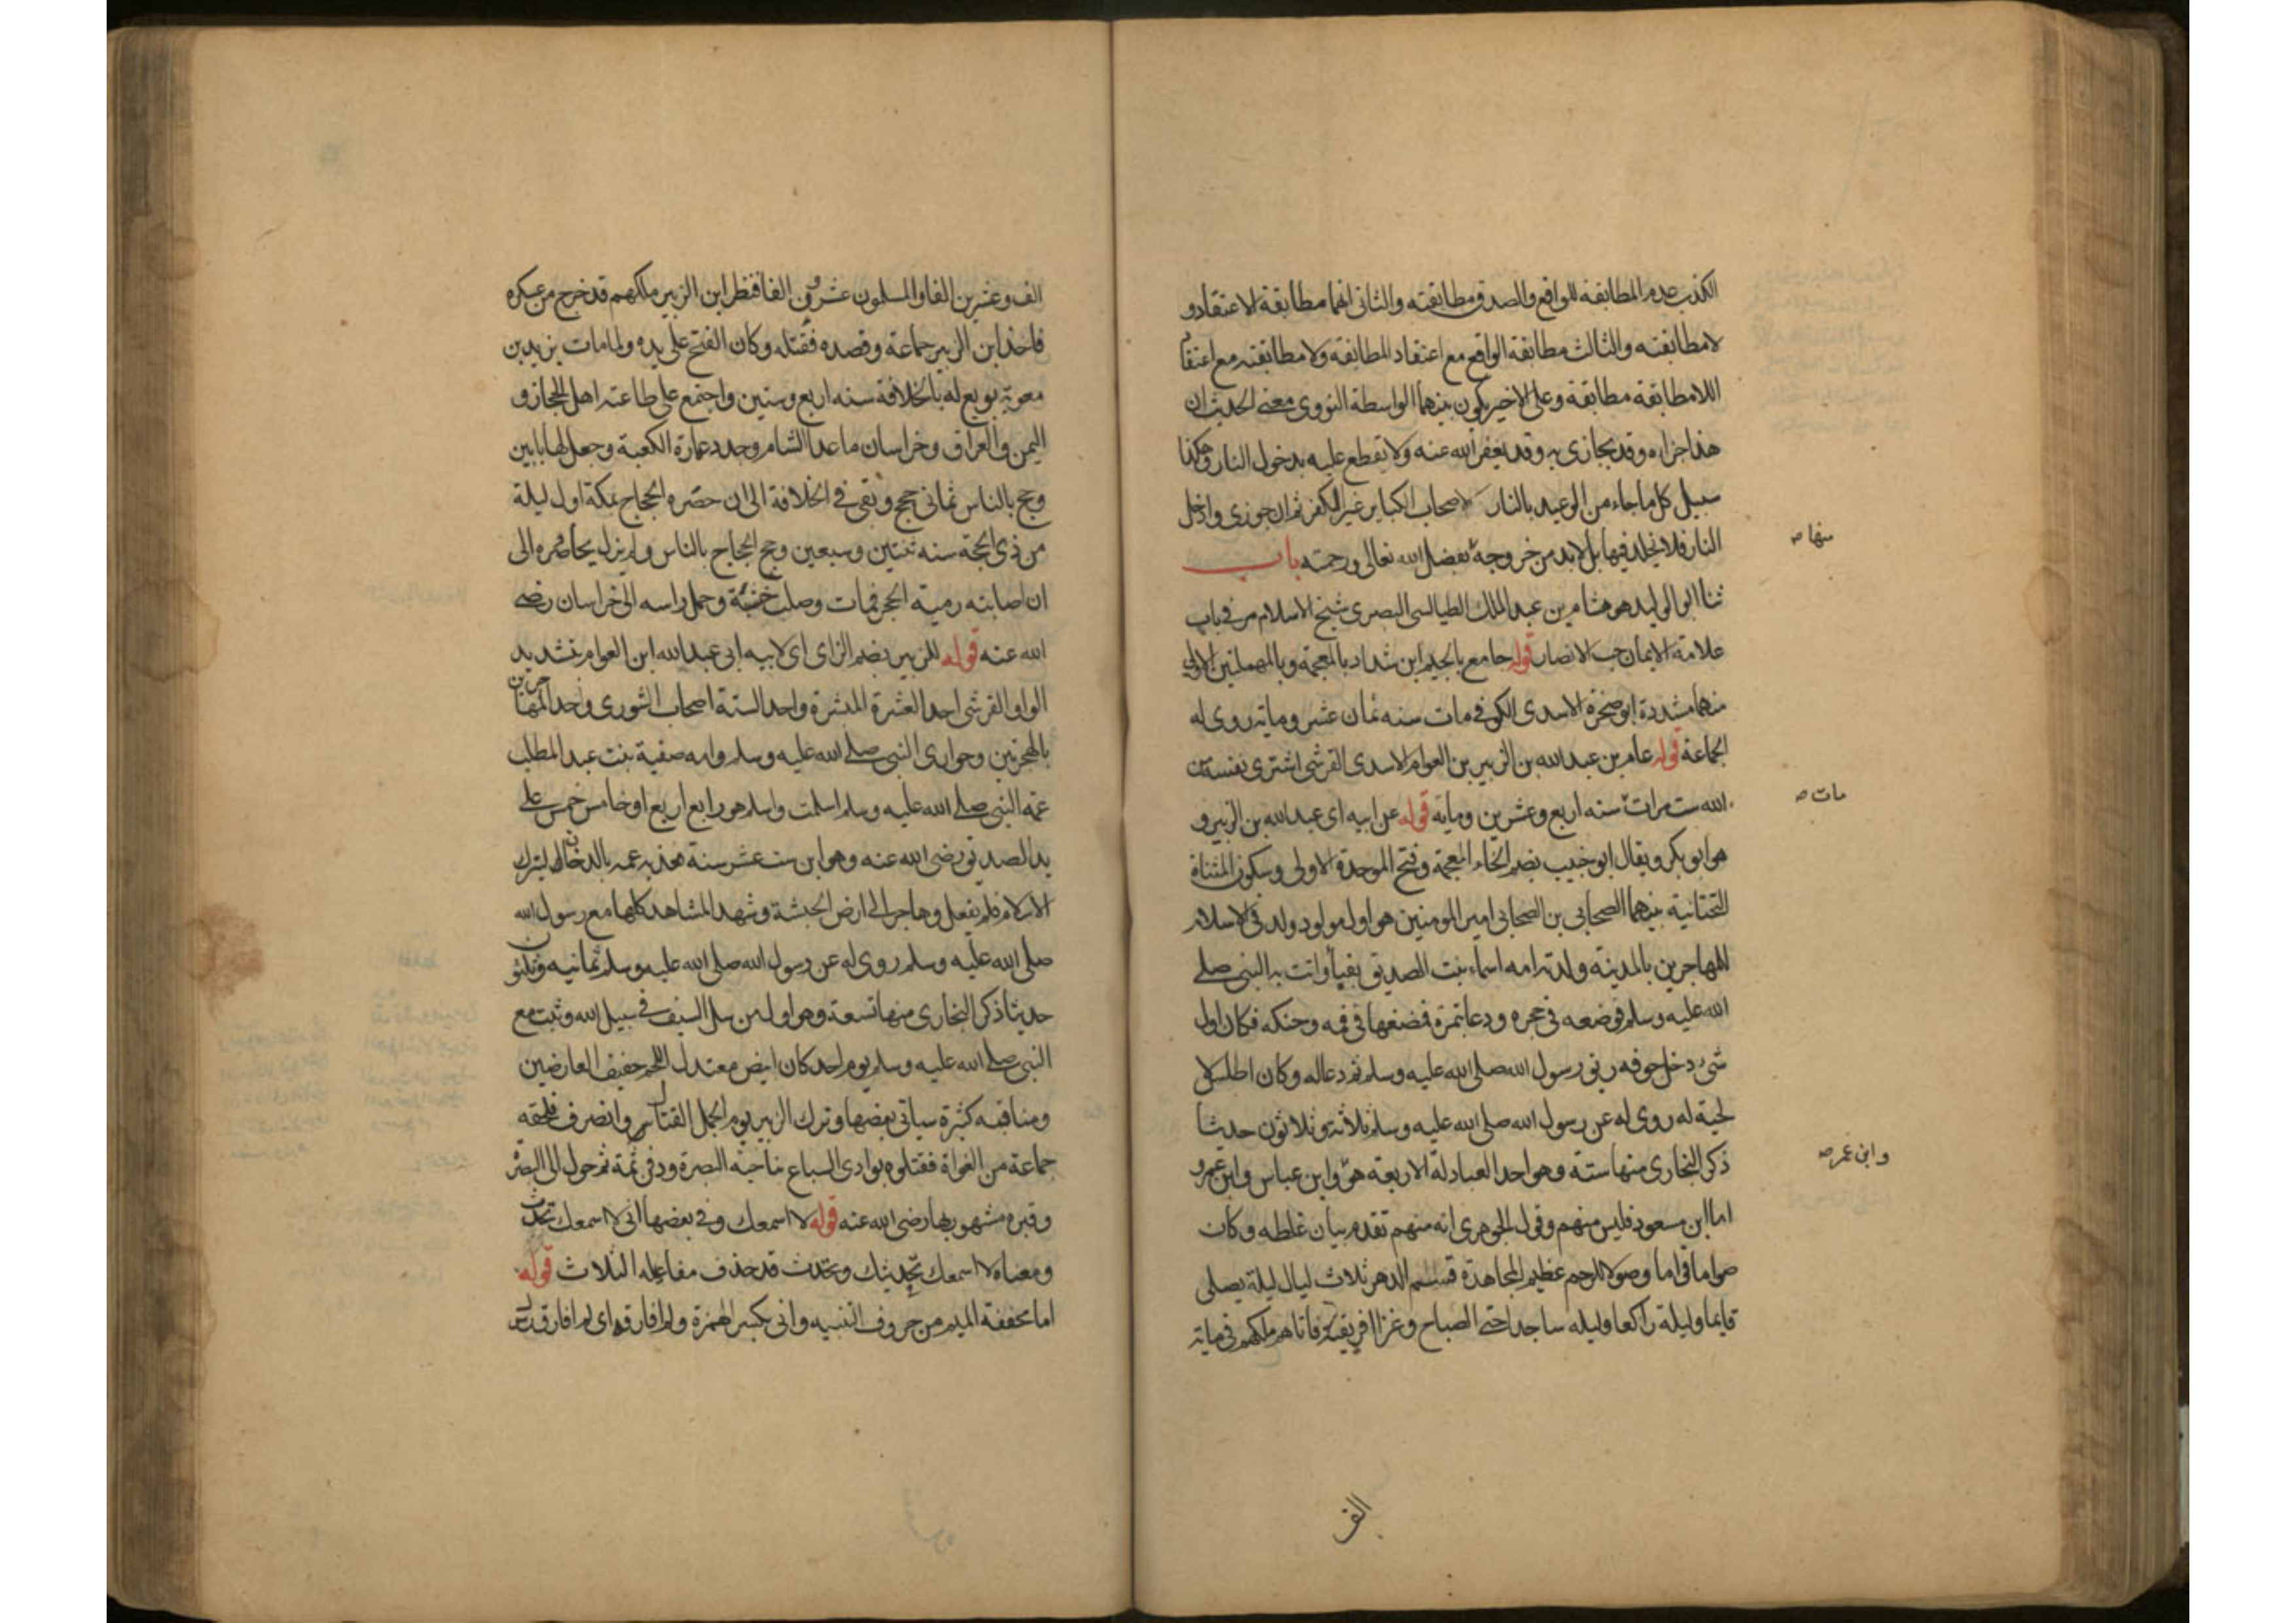 الكذب عدم المطابقة للواقع والصدق مطابقته والثاني انهما مطابقة الاعتقاد و
لا مطابقته والثالث مطابقة الواقع مع اعتقاد المطابقة ولا مطابقته مع اعتقاد
اللامطابقة مطابقة وعلى الاخير يكون بينهما الواسطة النووي معنى الحديث ان
هذا جزاه وقد يجازى به وقد يغفر الله عنه ولا تقطع عليه بدخول النار وهكذا
سبيل كل ما جاء من الوعيد بالنار لاصحاب الكباير غير الكفر ثم ان جوزي وادخل
النار فلا يخلد فيها بل لا بد من خروجه بفضل الله تعالى ورحمته باب
منها صه
ثنا ابو الوليد هو هشام بن عبد الملك الطيالسي البصري شيخ الاسلام مر في باب
علامة الايمان حب الانصار قوله جامع بالجيم ابن شداد بالمعجمة وبالمهملتين الاولى
منهما مشددة ابو صخرة الاسدي الكوفي مات سنه ثمان عشر وماية روى له
الجماعة قوله عامر بن عبد الله بن الزبير بن العوام الاسدي القرشي اشترى نفسه من
الله ست مرات سنه اربع وعشرين وماية قوله عن ابيه اي عبد الله بن الزبير و
مات صه
هو ابو بكر ويقال ابو خبيب بضم الخاء المعجمة وفتح الموحدة الاولى وسكون المثناة
التحتانية بينهما الصحابي بن الصحابي امير المومنين هو اول مولود ولد في الاسلام
للمهاجرين بالمدينه ولدته امه اسماء بنت الصديق بقباء واتت به النبي صلى
الله عليه وسلم فوضعه في حجره ودعا بتمرة فمضغها في فيه وحنكه فكان اول
شيء دخل جوفه ريق رسول الله صلى الله عليه وسلم ثم دعا له وكان اطلس لا
لحية له روى له عن رسول الله صلى الله عليه وسلم ثلاثه وثلاثون حديثا
ذكر البخاري منها ستة وهو احد العبادلة الاربعة هو وابن عباس وابن عمرو
وابن عمر صه
اما ابن مسعود فليس منهم وقول الجوهري انه منهم تقدم بيان غلطه وكان
صواما قواما وصولا للرحم عظيم المجاهدة قسم الدهر ثلاث ليال ليلة يصلي
قايما وليلة راكعا وليله ساجدا حتى الصباح وغزا افريقية فاتاهم ملكهم في ماية
الف
الف وعشرين الفا والمسلمون عشرون الفا فنظر ابن الزبير ملكهم قد خرج من عسكره
فاخذ ابن الزبير جماعة وقصده فقتله وكان الفتح على يده ولما مات يزيد بن
معوية بويع له بالخلافة سنه اربع وستين واجتمع على طاعته اهل الحجاز و
اليمن والعراق وخراسان ما عدا الشام وجدد عمارة الكعبة وجعل لها بابين
وحج بالناس ثماني حجج وبقي في الخلافة الى ان حصره الحجاج بمكة اول ليلة
من ذي الحجة سنه ثنتين وسبعين وحج الحجاج بالناس ولم يزل يحاصره الى
ان اصابته رمية الحجر فمات وصلب جثته وحمل راسه الى خراسان رضي
الله عنه قوله للزبير بضم الزاي اي لابيه ابي عبد الله ابن العوام بتشديد
الواو القرشي احد العشرة المبشرة واحد الستة اصحاب الشورى واحد المهاجرين
بالهجرتين وحواري النبي صلى الله عليه وسلم وامه صفية بنت عبد المطلب
عمة النبي صلى الله عليه وسلم اسلمت واسلم هو رابع اربع او خامس خمس على
يد الصديق رضي الله عنه وهو ابن ست عشر سنة فعذبه عمه بالدخان ليترك
الاسلام فلم يفعل وهاجر الى ارض الحبشة وشهد المشاهد كلها مع رسول الله
صلى الله عليه وسلم روى له عن رسول الله صلى الله عليه وسلم ثمانيه وثلثون
حديثا ذكر البخاري منها تسعة وهو اول من سل السيف في سبيل الله وثبت مع
النبي صلى الله عليه وسلم يوم احد كان ابيض معتدل اللحم خفيف العارضين
ومناقبه كثيرة سياتي بعضها وترك الزبير يوم الجمل القتال وانصرف فلحقه
جماعة من الغواة فقتلوه بوادي السباع بناحية البصرة ودفن ثمة ثم حول الى البصرة
وقبره مشهور بها رضي الله عنه قوله لا اسمعك وفي بعضها اني لا اسمعك تحدث
ومعناه لا اسمعك تحديثك وتحدث قد حذف مفاعيله الثلاث قوله
اما مخففة الميم من حروف التنبيه واني بكسر الهمزة ولم افارقه اي لم افارق رسول